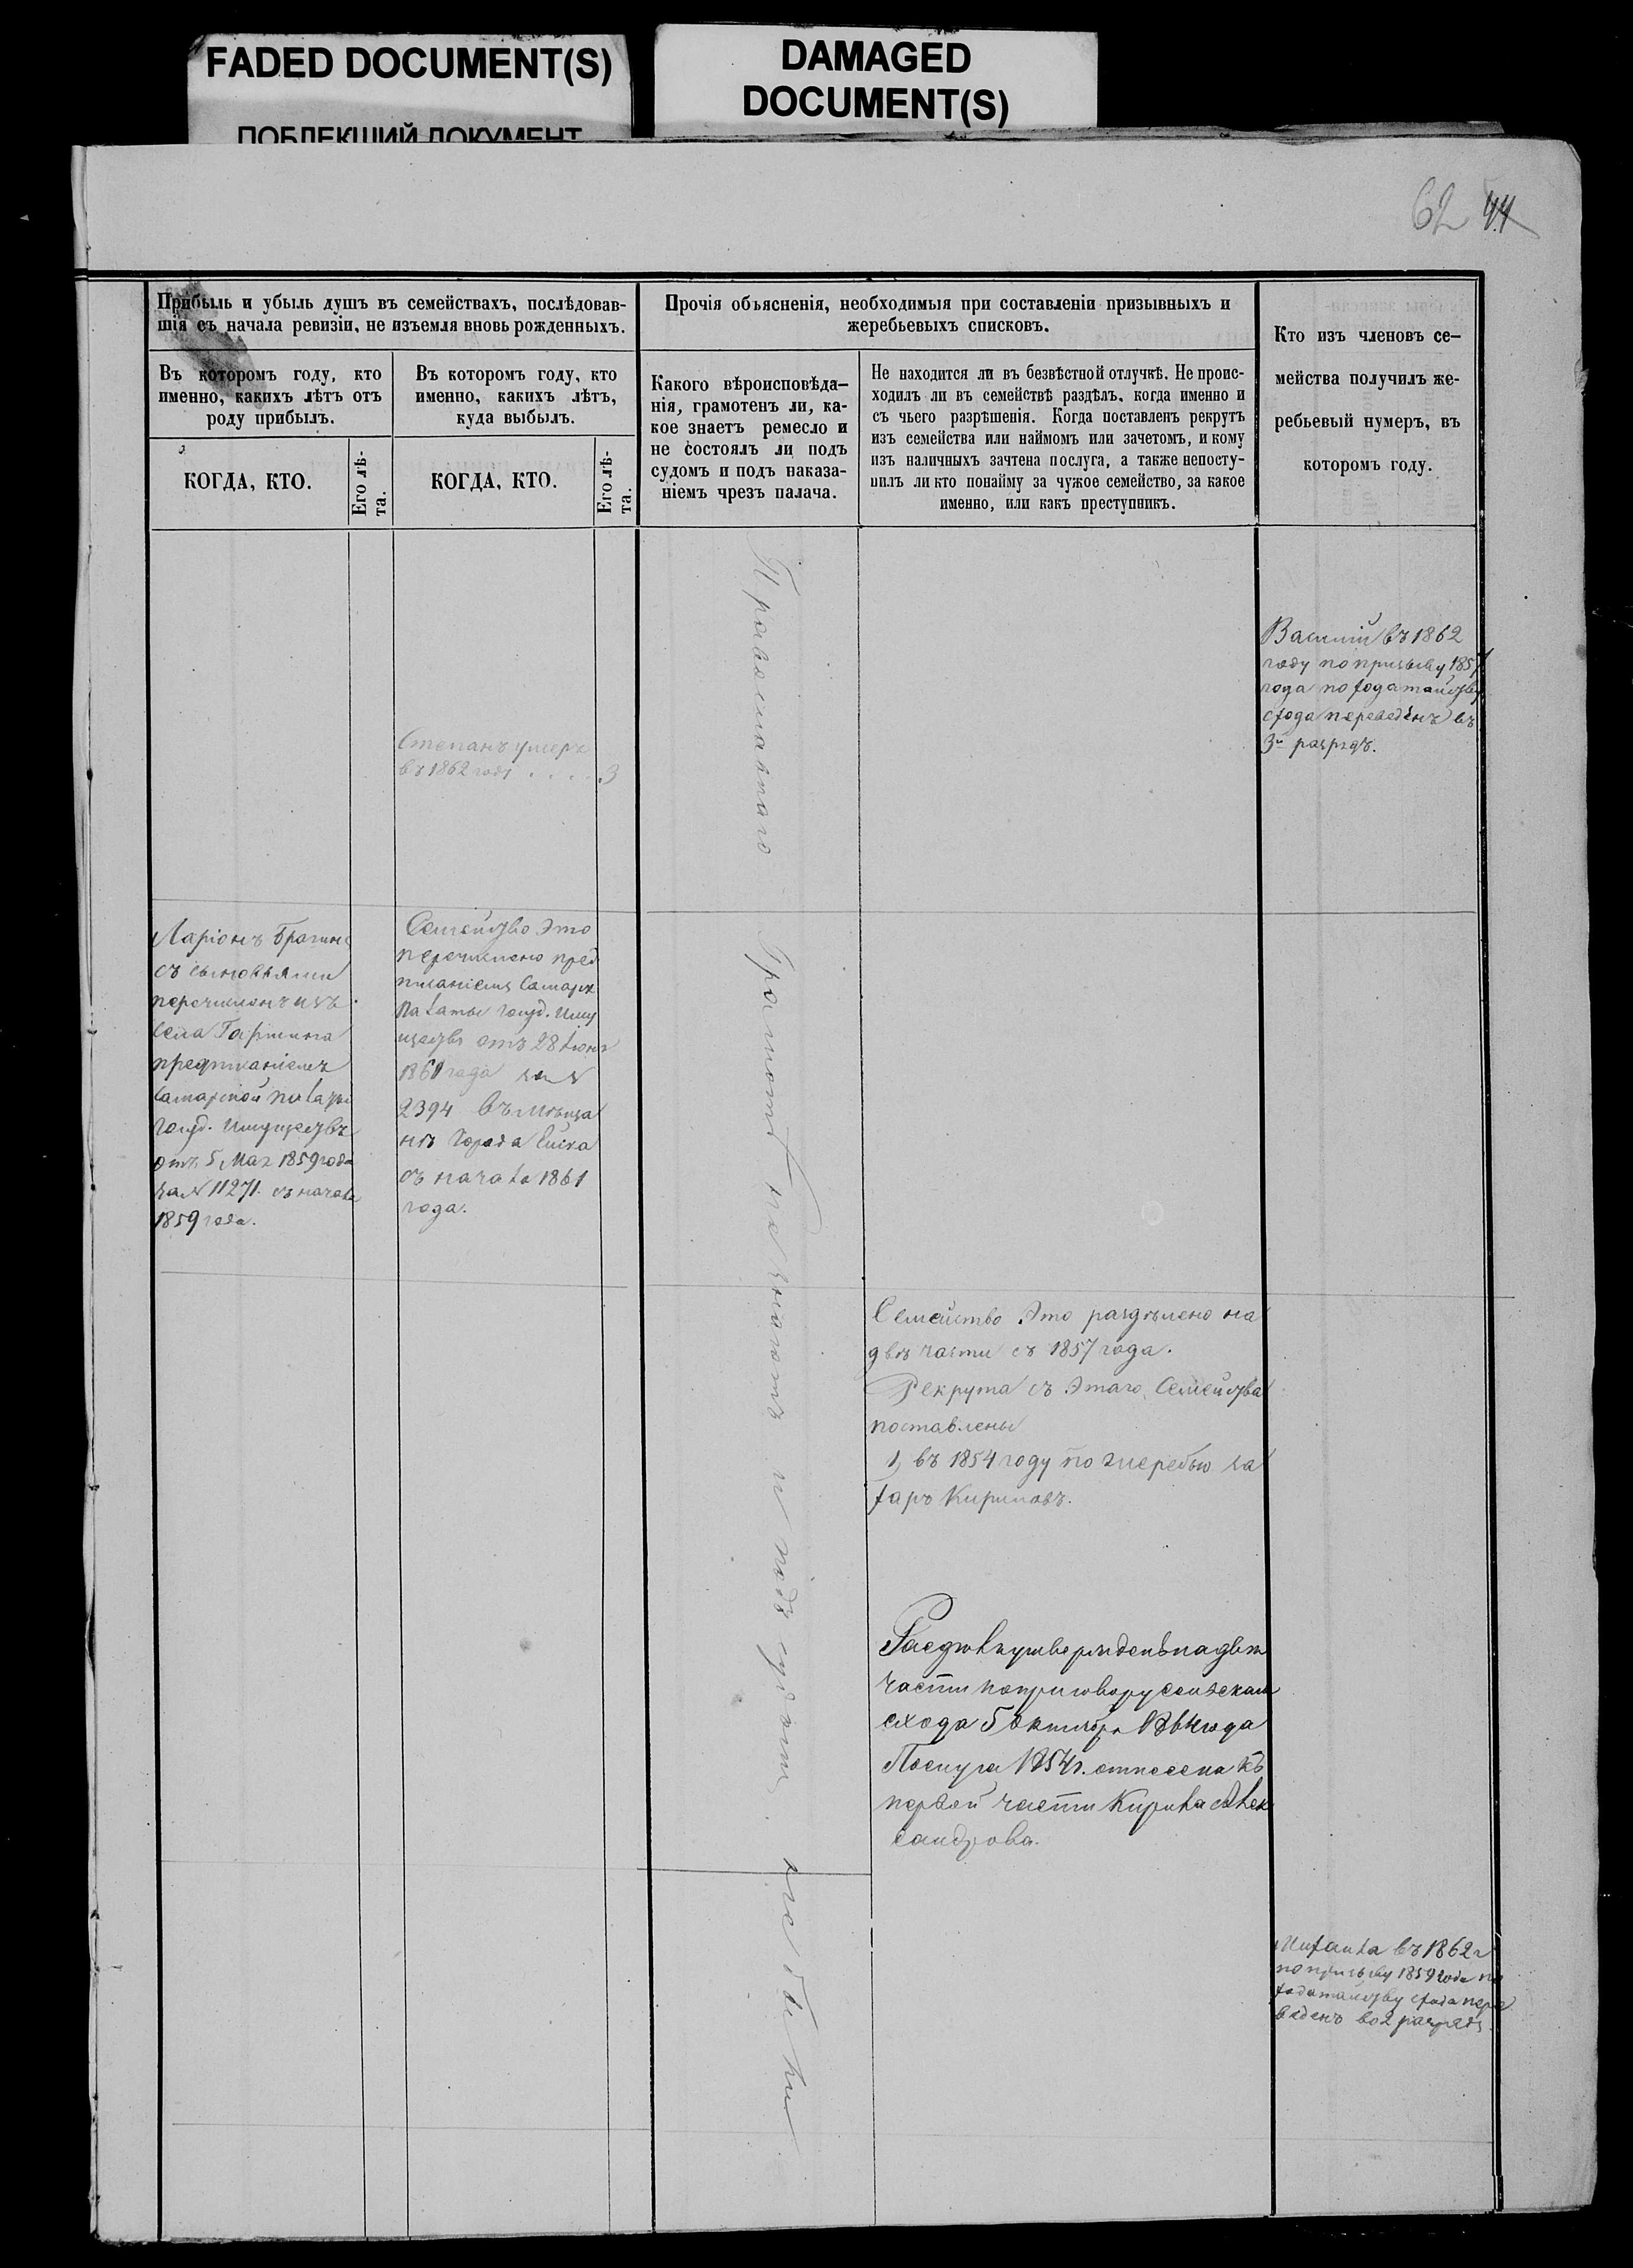 FADED DOCUMENT(S)
ПОБЛЕКШИЙ ДОКУМЕНТ
DAMAGED
DOCUMENT(S)
62 44
Прибыль и убыль душъ въ семействахъ, послѣдовав-
шія съ начала ревизіи, не изъемля вновь рожденныхъ.
Въ которомъ году, кто
именно, какихъ лѣтъ отъ
роду прибылъ.
КОГДА, КТО.
Его лѣ-
та.
Въ которомъ году, кто
именно, какихъ лѣтъ,
куда выбылъ.
КОГДА, КТО.
Его лѣ-
та.
Прочія объясненія, необходимыя при составленіи призывныхъ и
жеребьевыхъ списковъ.
Какого вѣроисповѣда-
нія, грамотенъ ли, ка-
кое знаетъ ремесло и
не состоялъ ли подъ
судомъ и подъ наказа-
ніемъ чрезъ палача.
Не находится ли въ безвѣстной отлучкѣ. Не проис-
ходилъ ли въ семействѣ раздѣлъ, когда именно и
съ чьего разрѣшенія. Когда поставленъ рекрутъ
изъ семейства или наймомъ или зачетомъ, и кому
изъ наличныхъ зачтена послуга, а также непосту-
пилъ ли кто понайму за чужое семейство, за какое
именно, или какъ преступникъ.
Кто изъ членовъ се-
мейства получилъ же-
ребьевый нумеръ, въ
которомъ году.
Степанъ умеръ
въ 1862 году . . . . . 3
Василій въ 1862
году по призыву 1857
года по ходатайству
схода переведенъ въ
3й разрядъ.
Ларіонъ Брагинъ
съ сыновьями
перечисленъ изъ
села
предписаніемъ
Самарской палаты
Госуд. Имуществъ
отъ 5 Мая 1859 года
за № 11271. съ начала
1859 года.
Семейство Это
перечислено пред
писаніемъ Самарск
Палаты Госуд. Иму
ществъ отъ 28 Іюня
1861 года за №
2394 въ мѣща
нѣ города Ейска
съ начала 1861
года.
Православнаго Грамотѣ не знаютъ и подъ судомъ не были
Семейство Это раздѣлено на
двѣ части съ 1857 года.
Рекрута съ Этаго Семейства
поставлены
1, въ 1854 году по жеребью За
харъ Кириловъ.
Раздѣлъ утвержденъ на двѣ
части по приговору сельскаго
схода 5 Октября 1864 года
Послуга 1854 г. отнесена къ
первой части Кирила Алек
сандрова.
въ 1862 г
по призыву 1859 года по
ходатайству схода пере
веденъ во 2 разрядъ.